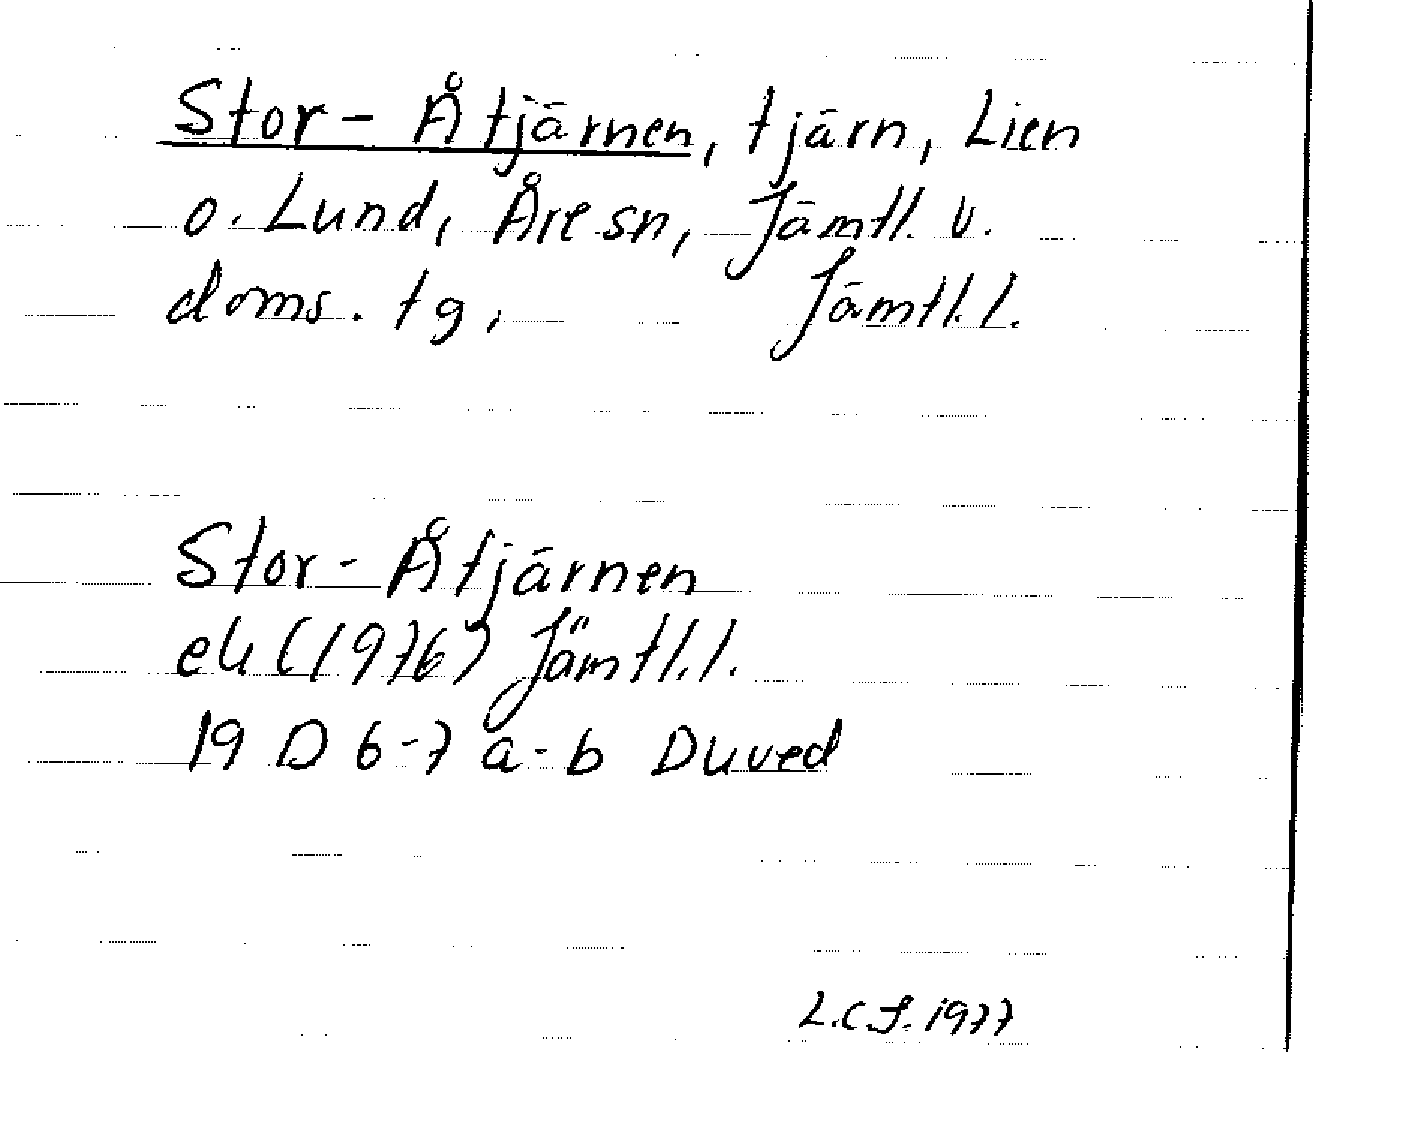 Stor-Åtjärnen, tjärn, Lien
o. Lund, Åre sn, Jämtl. v.
doms. tg, Jämtl. l.
Stor-Åtjärnen
ek (1976) Jämtl. l.
19 D 6-7 a-b Duved
L.C.J. 1977